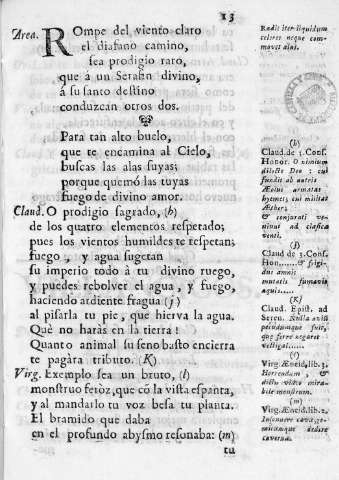 13
Area. ROmpe del viento claro
el diafano camino,
sea prodigio raro,
que à un Serafin divino,
à su santo destino
conduzcan otros dos.
Para tan alto buelo,
que te encamina al Cielo,
buscas las alas suyas;
porque quemó las tuyas
fuego de divino amor.
Claud. O prodigio sagrado, (h)
de los quatro elementos respetado;
pues los vientos humildes te respetan;
fuego, y agua sugetan
su imperio todo à tu divino ruego,
y puedes rebolver el agua, y fuego,
haciendo ardiente fragua (j)
al pisarla tu pie, que hierva la agua.
Què no haràs en la tierra!
Quanto animal su seno basto encierra
te pagàra tributo. (K)
Virg. Exemplo sea un bruto, (l)
monstruo feròz, que cõ la vista espanta,
y al mandarlo tu voz besa tu planta.
El bramido que daba
en el profundo abysmo resonaba: (m)
tu
Radit iter liquidum
celeres neque com-
movet alas.
(h)
Claud. de 3. Conf.
Honor. O nimium
dilecte Deo; cui
fundit ab antris
Æolus armatas
hyemes; cui militat
Æther;
& conjurati ve-
niunt ad clasica
venti.
(J)
Claud de 3. Conf.
Hon......& frigi-
dus amnis
mutatis fumavit
aquis.....
(K)
Claud. Epist. ad
Seren. Nulla avis
pecudumque fuit,
que ferre negaret
vectigal......
(l)
Virg. Æneid. lib. 3.
Horrendum, &
dictu visu mira-
bile monstrum.
(m)
Virg. Æneid. lib. 2.
Insonuere cavæ, ge-
mitumque dedere
cavernæ.